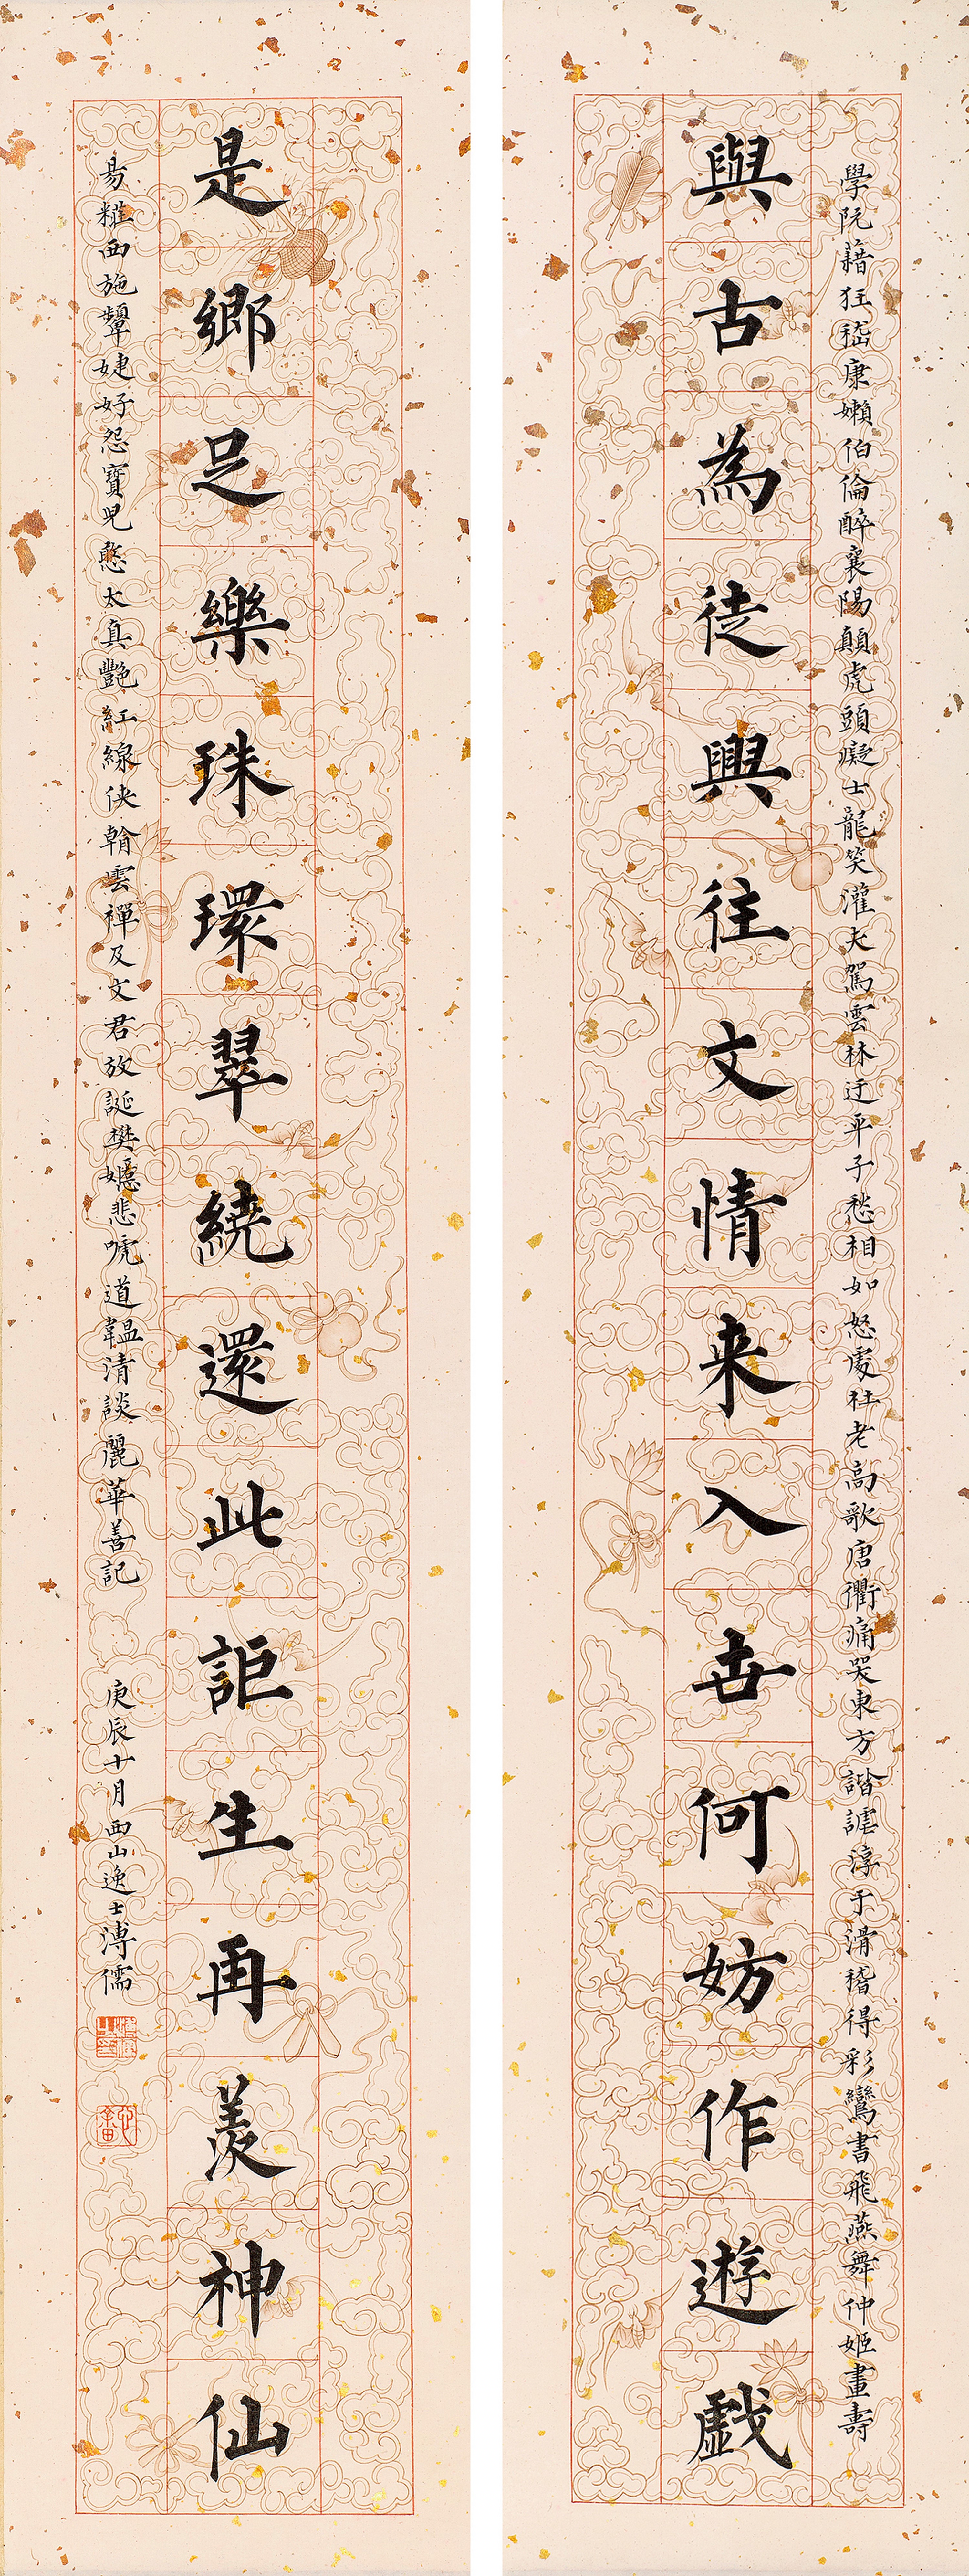 學阮藉狂嵇康嬾伯倫醉襄陽顛虎頭癡士龍笑灌夫罵雲林迂平子愁相如怒處杜老高歌唐衢痛哭東方諧謔淳于滑稽得彩鸞書飛燕舞仲姬畫壽
與古為徒興往文情来入世何妨作遊戲
是鄉足樂珠環翠繞還此詎生再羨神仙
昜糚西施顰婕妤怨寶兒憨太真艷紅線俠朝雲禪及文君放誕樊嬺悲唬道韞清談麗華善記
庚辰十月西山逸士溥儒